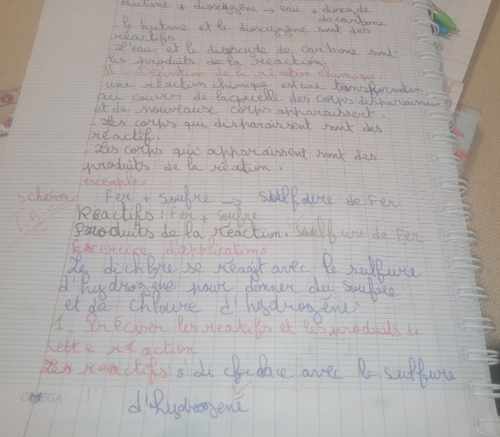 Butane + dioxygène → eau + dioxyde
de carbone
- le butane et le dioxygène sont des
réactifs.
- L'eau et le dioxyde de carbone sont
les produits de la réaction
II - Définition de la réaction chimique:
une réaction chimique est une transformation
au cours de laquelle des corps disparaissen
et de nouveaux corps apparaissent.
- Les corps qui disparaissent sont des
réactif.
- Les corps qui apparaissent sont des
produits de la réation.
exemple:
Schéma
Fer + Soufre → Sulfure de Fer
Réactifs: Fer + Soufre
Produits de la réaction: Sulfure de Fer
Exercice d'application
Le dichlore se réagit avec le sulfure
d'hydrogène pour donner du soufre
et de chlorure d'hydrogène.
1 - Préciser les réatifs et les produits de
cette réaction
Les reactifs: di avec le sulfure
OMEGA
d'hydrogène